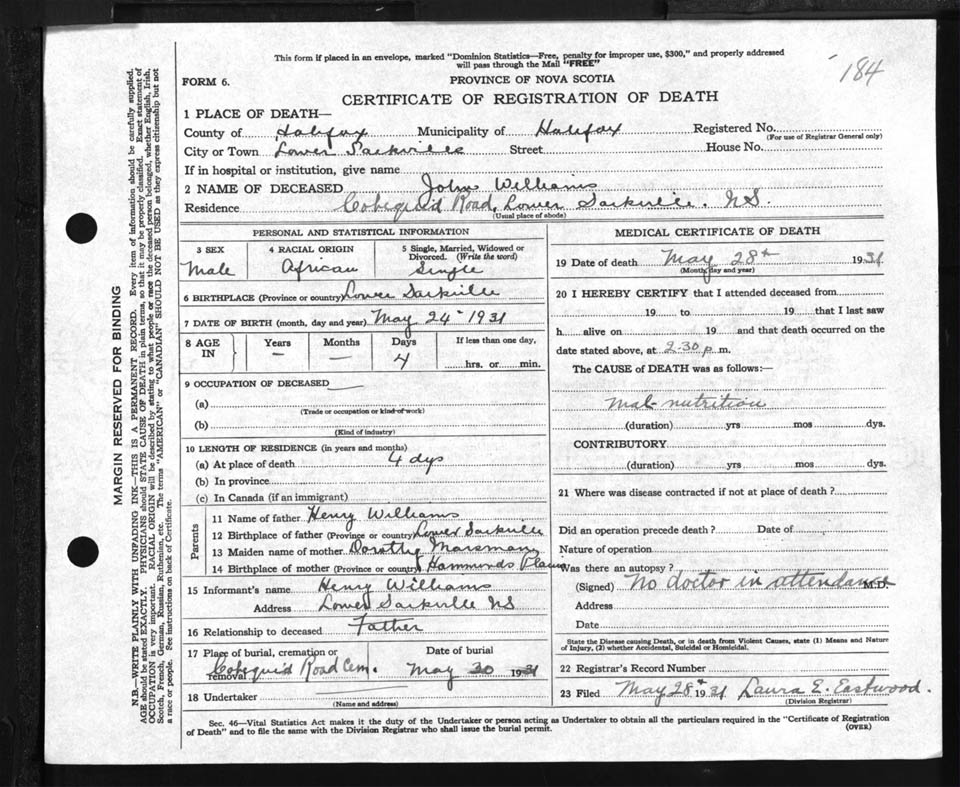 This form if placed in an envelope, marked "Dominion Statistics—Free, penalty for improper use, $300," and properly addressed
will pass through the Mail "FREE"
184
FORM 6.
PROVINCE OF NOVA SCOTIA
CERTIFICATE OF REGISTRATION OF DEATH
1 PLACE OF DEATH—
County of Halifax Municipality of Halifax Registered No.
(For use of Registrar General only)
City or Town Lower Sackville Street House No.
If in hospital or institution, give name
2 NAME OF DECEASED John Williams
Residence Cobequid Road, Lower Sackville. NS.
(Usual place of abode)
PERSONAL AND STATISTICAL INFORMATION
3 SEX
Male
4 RACIAL ORIGIN
African
5 Single, Married, Widowed or
Divorced. (Write the word)
Single
6 BIRTHPLACE (Province or country) Lower Sackville
7 DATE OF BIRTH (month, day and year) May 24 - 1931
8 AGE IN
Years —
Months —
Days 4
If less than one day,
hrs. or min.
9 OCCUPATION OF DECEASED —
(a)
(Trade or occupation or kind of work)
(b)
(Kind of industry)
10 LENGTH OF RESIDENCE (in years and months)
(a) At place of death 4 dys
(b) In province
(c) In Canada (if an immigrant)
Parents
11 Name of father Henry Williams
12 Birthplace of father (Province or country) Lower Sackville
13 Maiden name of mother Dorothy
14 Birthplace of mother (Province or country) Hammonds Plains
15 Informant's name Henry Williams
Address Lower Sackville NS
16 Relationship to deceased Father
17 Place of burial, cremation or
removal Cobequid Road Cem.
Date of burial
May 30 1931
18 Undertaker
(Name and address)
MEDICAL CERTIFICATE OF DEATH
19 Date of death May 28th 1931
(Month, day and year)
20 I HEREBY CERTIFY that I attended deceased from
19 to 19 that I last saw
h alive on 19 and that death occurred on
date stated above, at 2-30 p m.
The CAUSE of DEATH was as follows:—
Mal-nutrition
(duration) yrs mos dys.
CONTRIBUTORY
(duration) yrs mos dys.
21 Where was disease contracted if not at place of death?
Did an operation precede death? Date of
Nature of operation
Was there an autopsy?
(Signed) No doctor in attendance M.D.
Address
Date
State the Disease causing Death, or in death from Violent Causes, state (1) Means and Nature
of Injury, (2) whether Accidental, Suicidal or Homicidal.
22 Registrar's Record Number
23 Filed May 28th 1931 Laura E. Eastwood.
(Division Registrar)
Sec. 46—Vital Statistics Act makes it the duty of the Undertaker or person acting as Undertaker to obtain all the particulars required in the "Certificate of Registration
of Death" and to file the same with the Division Registrar who shall issue the burial permit.
(OVER)
MARGIN RESERVED FOR BINDING
N.B.—WRITE PLAINLY WITH UNFADING INK—THIS IS A PERMANENT RECORD. Every item of information should be carefully supplied.
AGE should be stated EXACTLY. PHYSICIANS should STATE CAUSE OF DEATH in plain terms, so that it may be properly classified. Exact statement of
OCCUPATION is very important. RACIAL ORIGIN will be described by stating to what people or race the deceased person belonged, whether English, Irish,
Scotch, French, German, Russian, Ruthenian, etc. The terms "AMERICAN" or "CANADIAN" SHOULD NOT BE USED as they express citizenship but not
a race or people. See instructions on back of Certificate.